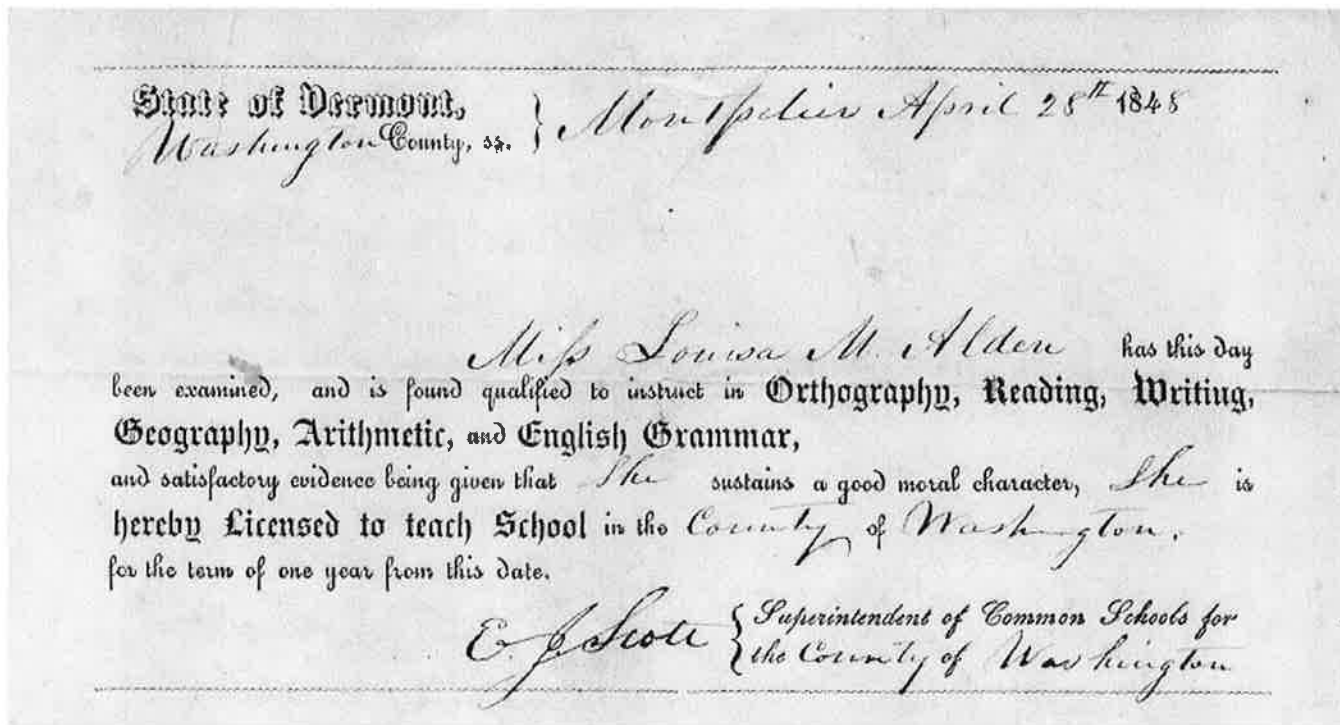 State of Vermont,
Washington County, ss. } Montpelier April 28th 1848
Miss Louisa M. Alden has this day
been examined, and is found qualified to instruct in Orthography, Reading, Writing,
Geography, Arithmetic, and English Grammar,
and satisfactory evidence being given that She sustains a good moral character, She is
hereby Licensed to teach School in the County of Washington.
for the term of one year from this date.
E. J. Scott { Superintendent of Common Schools for
the County of Washington